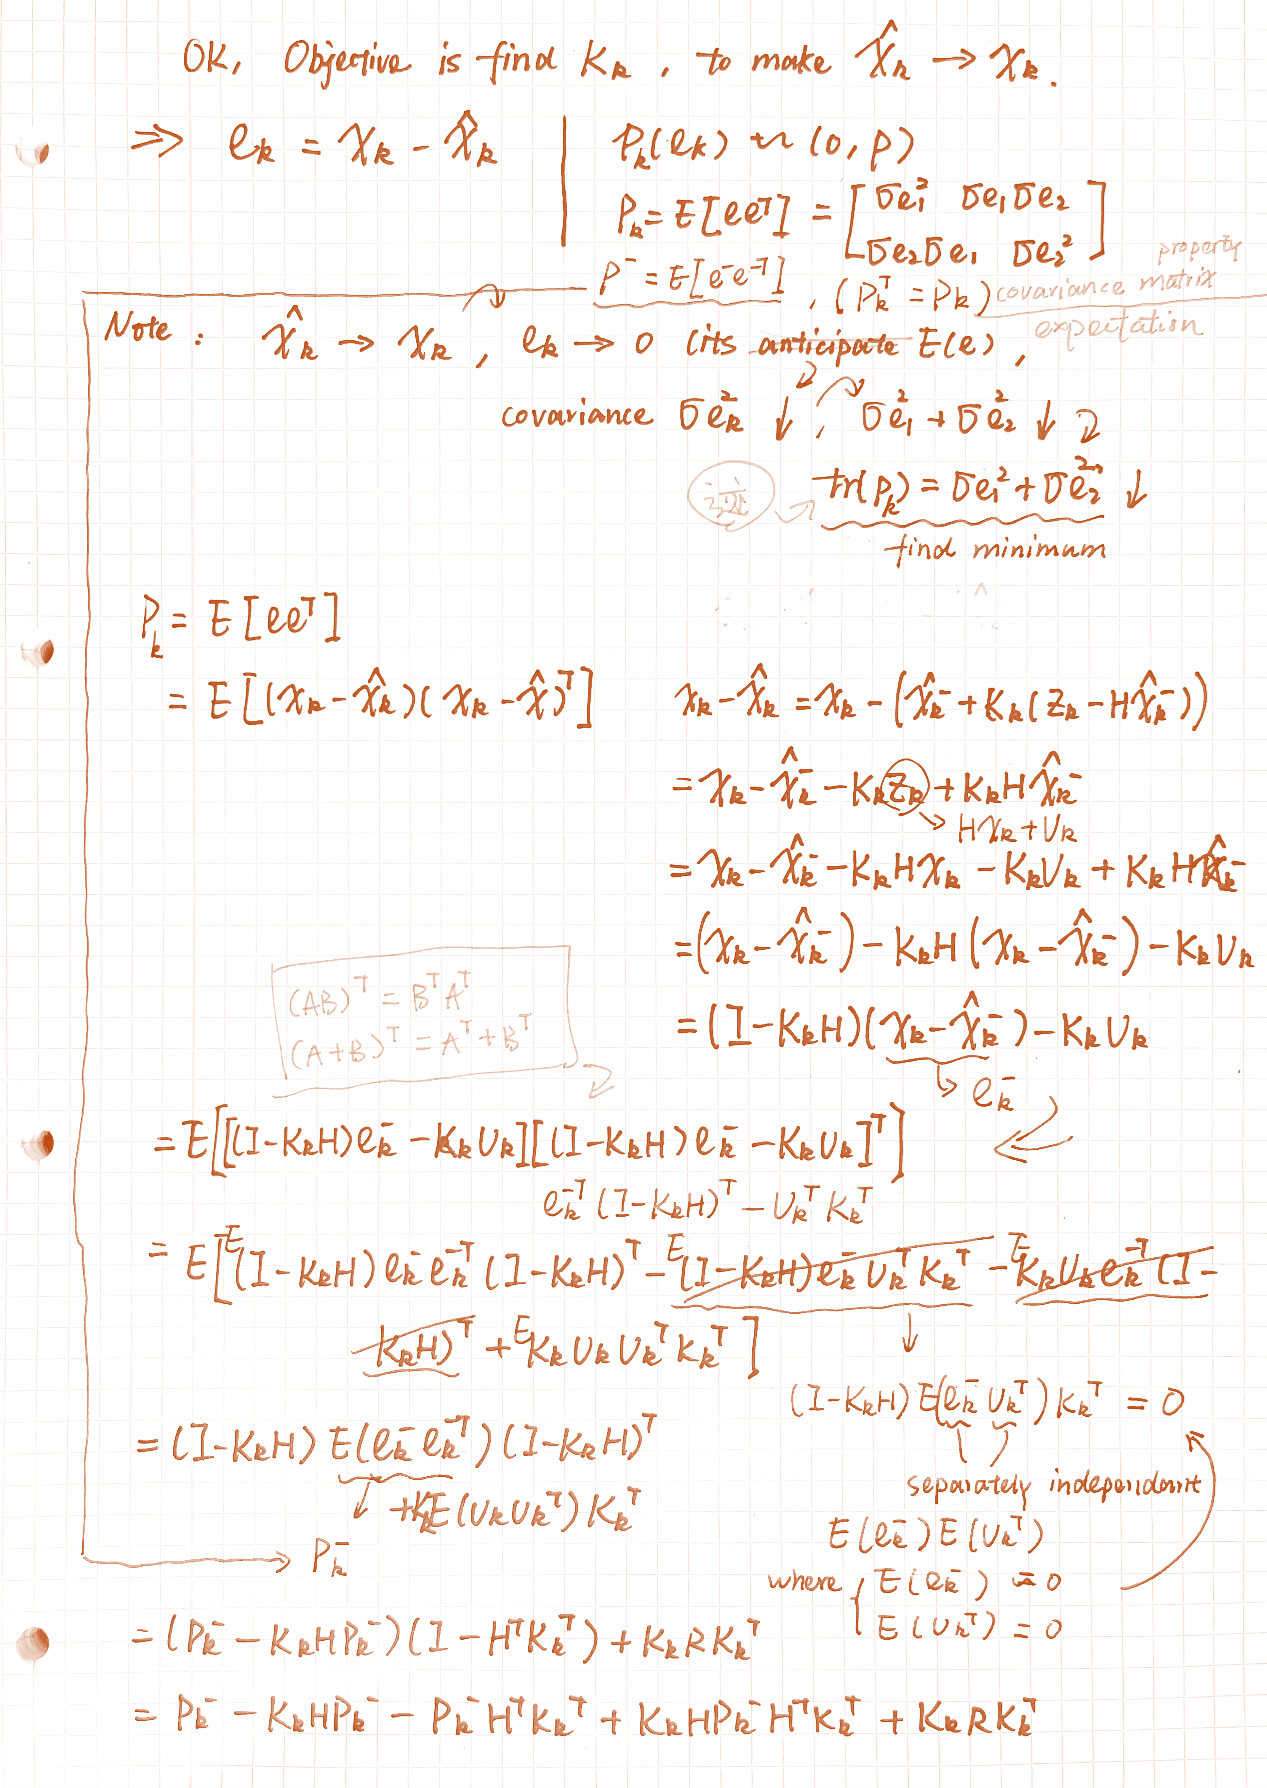 OK, Objective is find Kₖ, to make X̂ₖ → xₖ.
⇒ eₖ = xₖ - x̂ₖ
Pₖ(eₖ) ~ (0, P)
Pₖ = E[eeᵀ] = [σe₁² σe₁σe₂
σe₂σe₁ σe₂²]
P⁻ = E[e⁻e⁻ᵀ], (Pₖᵀ = Pₖ) covariance matrix property
Note: x̂ₖ → xₖ, eₖ → 0 (its anticipate E(e),
expectation
covariance σeₖ² ↓, σe₁² + σe₂² ↓
迹 tr(Pₖ) = σe₁² + σe₂² ↓
find minimum
Pₖ = E[eeᵀ]
= E[(xₖ - x̂ₖ)(xₖ - x̂)ᵀ]
xₖ - x̂ₖ = xₖ - (x̂ₖ⁻ + Kₖ(zₖ - Hx̂ₖ⁻))
= xₖ - x̂ₖ⁻ - Kₖzₖ + KₖHx̂ₖ⁻
→ Hxₖ + vₖ
= xₖ - x̂ₖ⁻ - KₖHxₖ - Kₖvₖ + KₖHx̂ₖ⁻
= (xₖ - x̂ₖ⁻) - KₖH(xₖ - x̂ₖ⁻) - Kₖvₖ
= (I - KₖH)(xₖ - x̂ₖ⁻) - Kₖvₖ
→ eₖ⁻
(AB)ᵀ = BᵀAᵀ
(A+B)ᵀ = Aᵀ + Bᵀ
= E[[(I - KₖH)eₖ⁻ - Kₖvₖ][(I - KₖH)eₖ⁻ - Kₖvₖ]ᵀ]
eₖ⁻ᵀ(I - KₖH)ᵀ - vₖᵀKₖᵀ
= E[E(I - KₖH)eₖ⁻eₖ⁻ᵀ(I - KₖH)ᵀ - E(I - KₖH)eₖ⁻vₖᵀKₖᵀ - EKₖvₖeₖ⁻ᵀ(I -
KₖH)ᵀ + EKₖvₖvₖᵀKₖᵀ]
(I - KₖH)E(eₖ⁻vₖᵀ)Kₖᵀ = 0
separately independant
E(eₖ⁻)E(vₖᵀ)
where { E(eₖ⁻) = 0
E(vₖᵀ) = 0
= (I - KₖH)E(eₖ⁻eₖ⁻ᵀ)(I - KₖH)ᵀ
+ KₖE(vₖvₖᵀ)Kₖᵀ
→ Pₖ⁻
= (Pₖ⁻ - KₖHPₖ⁻)(I - HᵀKₖᵀ) + KₖRKₖᵀ
= Pₖ⁻ - KₖHPₖ⁻ - Pₖ⁻HᵀKₖᵀ + KₖHPₖ⁻HᵀKₖᵀ + KₖRKₖᵀ